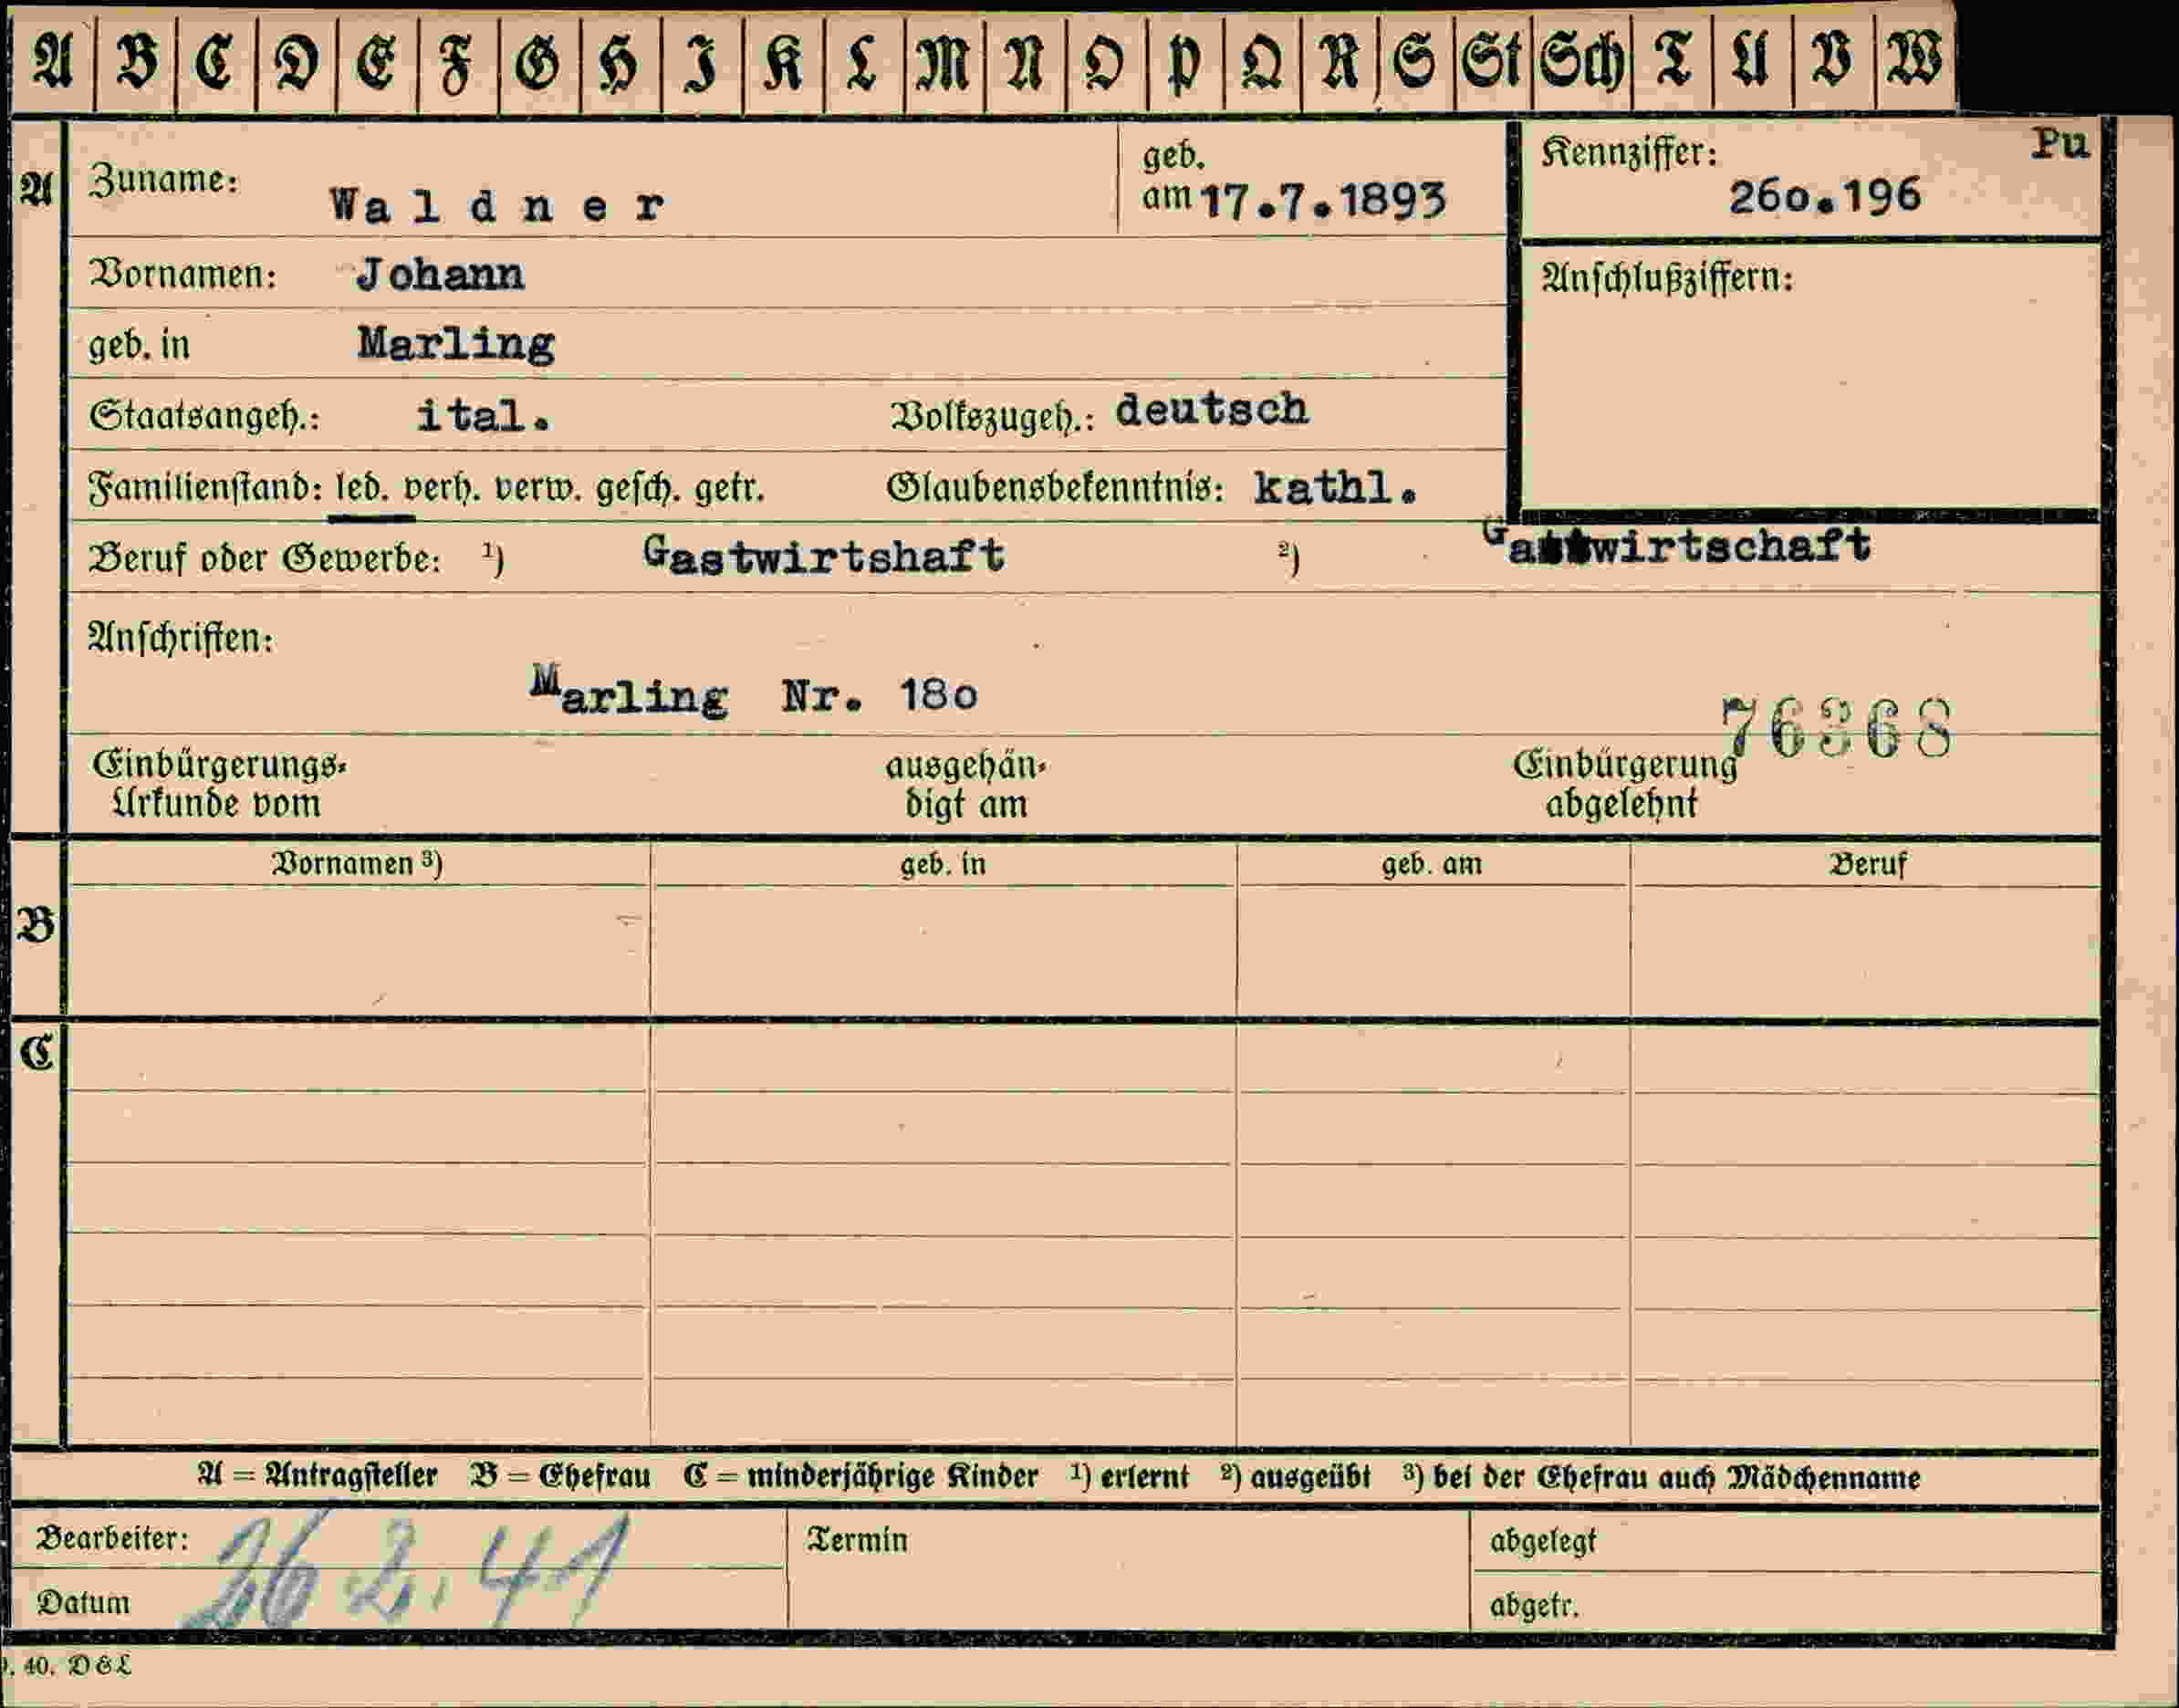 A B C D E F G H I K L M N O P Q R S St Sch T U V W
A Zuname: Waldner geb. am 17.7.1893 Kennziffer: 26o.196 Pu
Vornamen: Johann Anschlußziffern:
geb. in Marling
Staatsangeh.: ital. Volkszugeh.: deutsch
Familienstand: led. verh. verw. gesch. getr. Glaubensbekenntnis: kathl.
Beruf oder Gewerbe: ¹) Gastwirtshaft ²) Gastwirtschaft
Anschriften:
Marling Nr. 18o
76368
Einbürgerungs- ausgehän- Einbürgerung
Urkunde vom digt am abgelehnt
Vornamen ³) geb. in geb. am Beruf
B
C
A = Antragsteller B = Ehefrau C = minderjährige Kinder ¹) erlernt ²) ausgeübt ³) bei der Ehefrau auch Mädchenname
Bearbeiter: Termin abgelegt
26 2. 41
Datum abgetr.
. 40. D&L